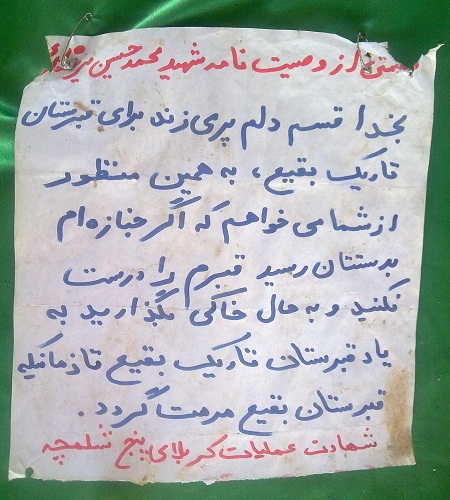 قسمتی از وصیت نامه شهید محمد حسین
بخدا قسم دلم پری زند برای قبرستان
تاریک بقیع ، به همین منظور
از شما می خواهم که اگر جنازه ام
بدستتان رسید قبرم را درست
نکنید و به حال خاکی بگذارید به
یاد قبرستان تاریک بقیع تا زمانیکه
قبرستان بقیع مرمت گردد .
شهادت عملیات کربلای پنج شلمچه